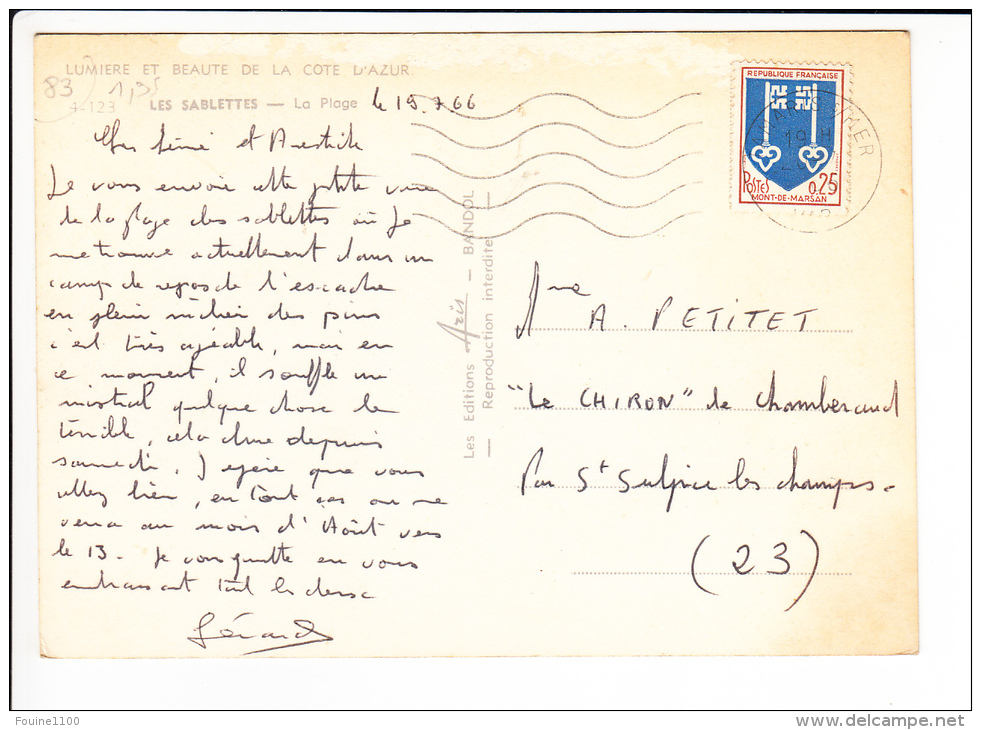 LUMIERE ET BEAUTE DE LA COTE D'AZUR
83 1,35
4-123 LES SABLETTES — La Plage le 19.7.66
et
Je vous envoie cette petite vue
de la plage des sablettes où Je
me trouve actuellement dans un
camp de repos de l'escadre
en plein milieu des pins
c'est très agréable, mais en
ce moment, il souffle un
mistral quelque chose de
terrible, cela dure depuis
samedi. J'espère que vous
allez bien, en tout cas on se
verra au mois d'Août vers
le 13 - Je vous quitte en vous
embrassant tout les deux
Gérard
Les Editions Aris — BANDOL
— Reproduction interdite —
REPUBLIQUE FRANÇAISE
POSTES 0,25
MONT-DE-MARSAN
19 H
VAR
Mme A. PETITET
"Le CHIRON" de Chamberaud
Par St Sulpice les champs -
(23)
Fouine1100
delcampe.net